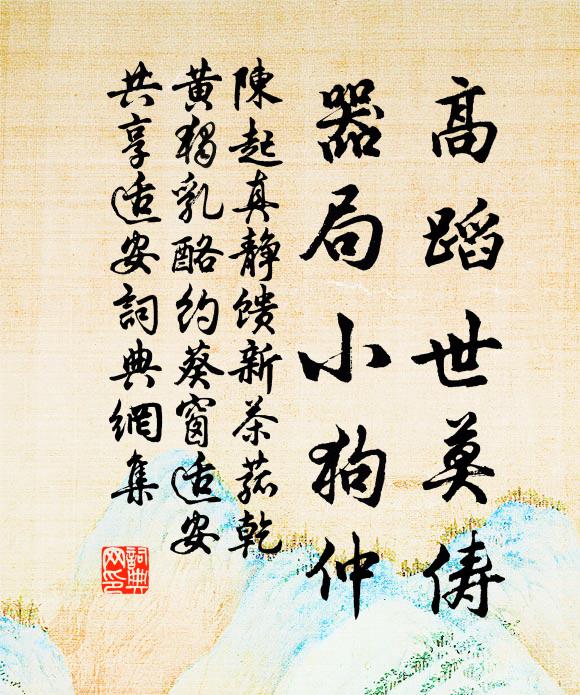 高蹈世莫俦
器局小狗仲
陳起真靜馈新茶菰乾
黃獨乳酪约葵窗适安
共享适安詞典網集
詞典网印